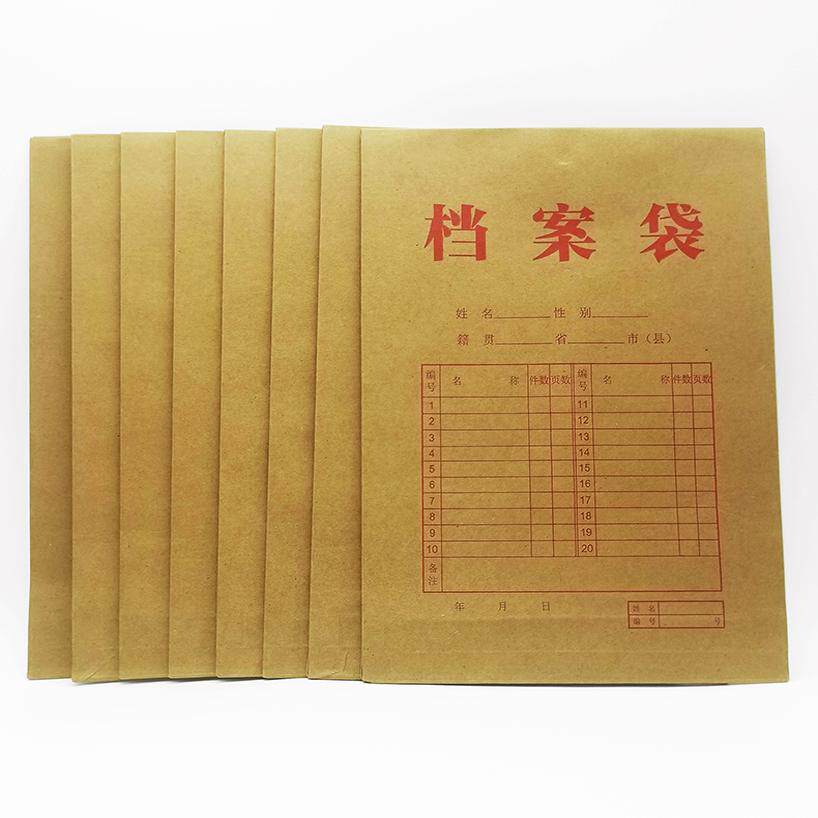 档案袋
姓 名________性 别________
籍 贯________省________市（县）
编号 名 称 件数 页数 编号 名 称 件数 页数
1 11
2 12
3 13
4 14
5 15
6 16
7 17
8 18
9 19
10 20
备注
年 月 日
姓 名
编 号 号